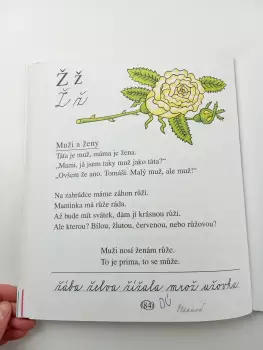 Ž ž
Ž ž
Muži a ženy
Táta je muž, máma je žena.
„Mami, já jsem taky muž jako táta?“
„Ovšem že ano, Tomáši. Malý muž, ale muž!“
Na zahrádce máme záhon růží.
Maminka má růže ráda.
Až bude mít svátek, dám jí krásnou růži.
Ale kterou? Bílou, žlutou, červenou, nebo růžovou?
Muži nosí ženám růže.
To je prima, to se může.
žába želva žížala mrož užovka
84 DÚ